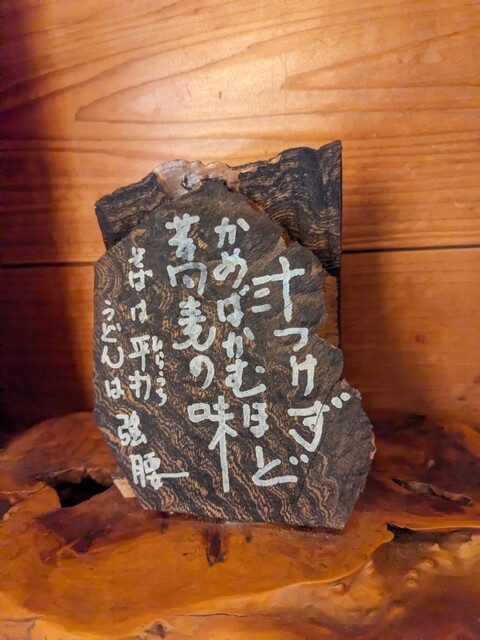 汁つけず
かめばかむほど
蕎麦の味
そばは平打
ひらうち
うどんは強腰